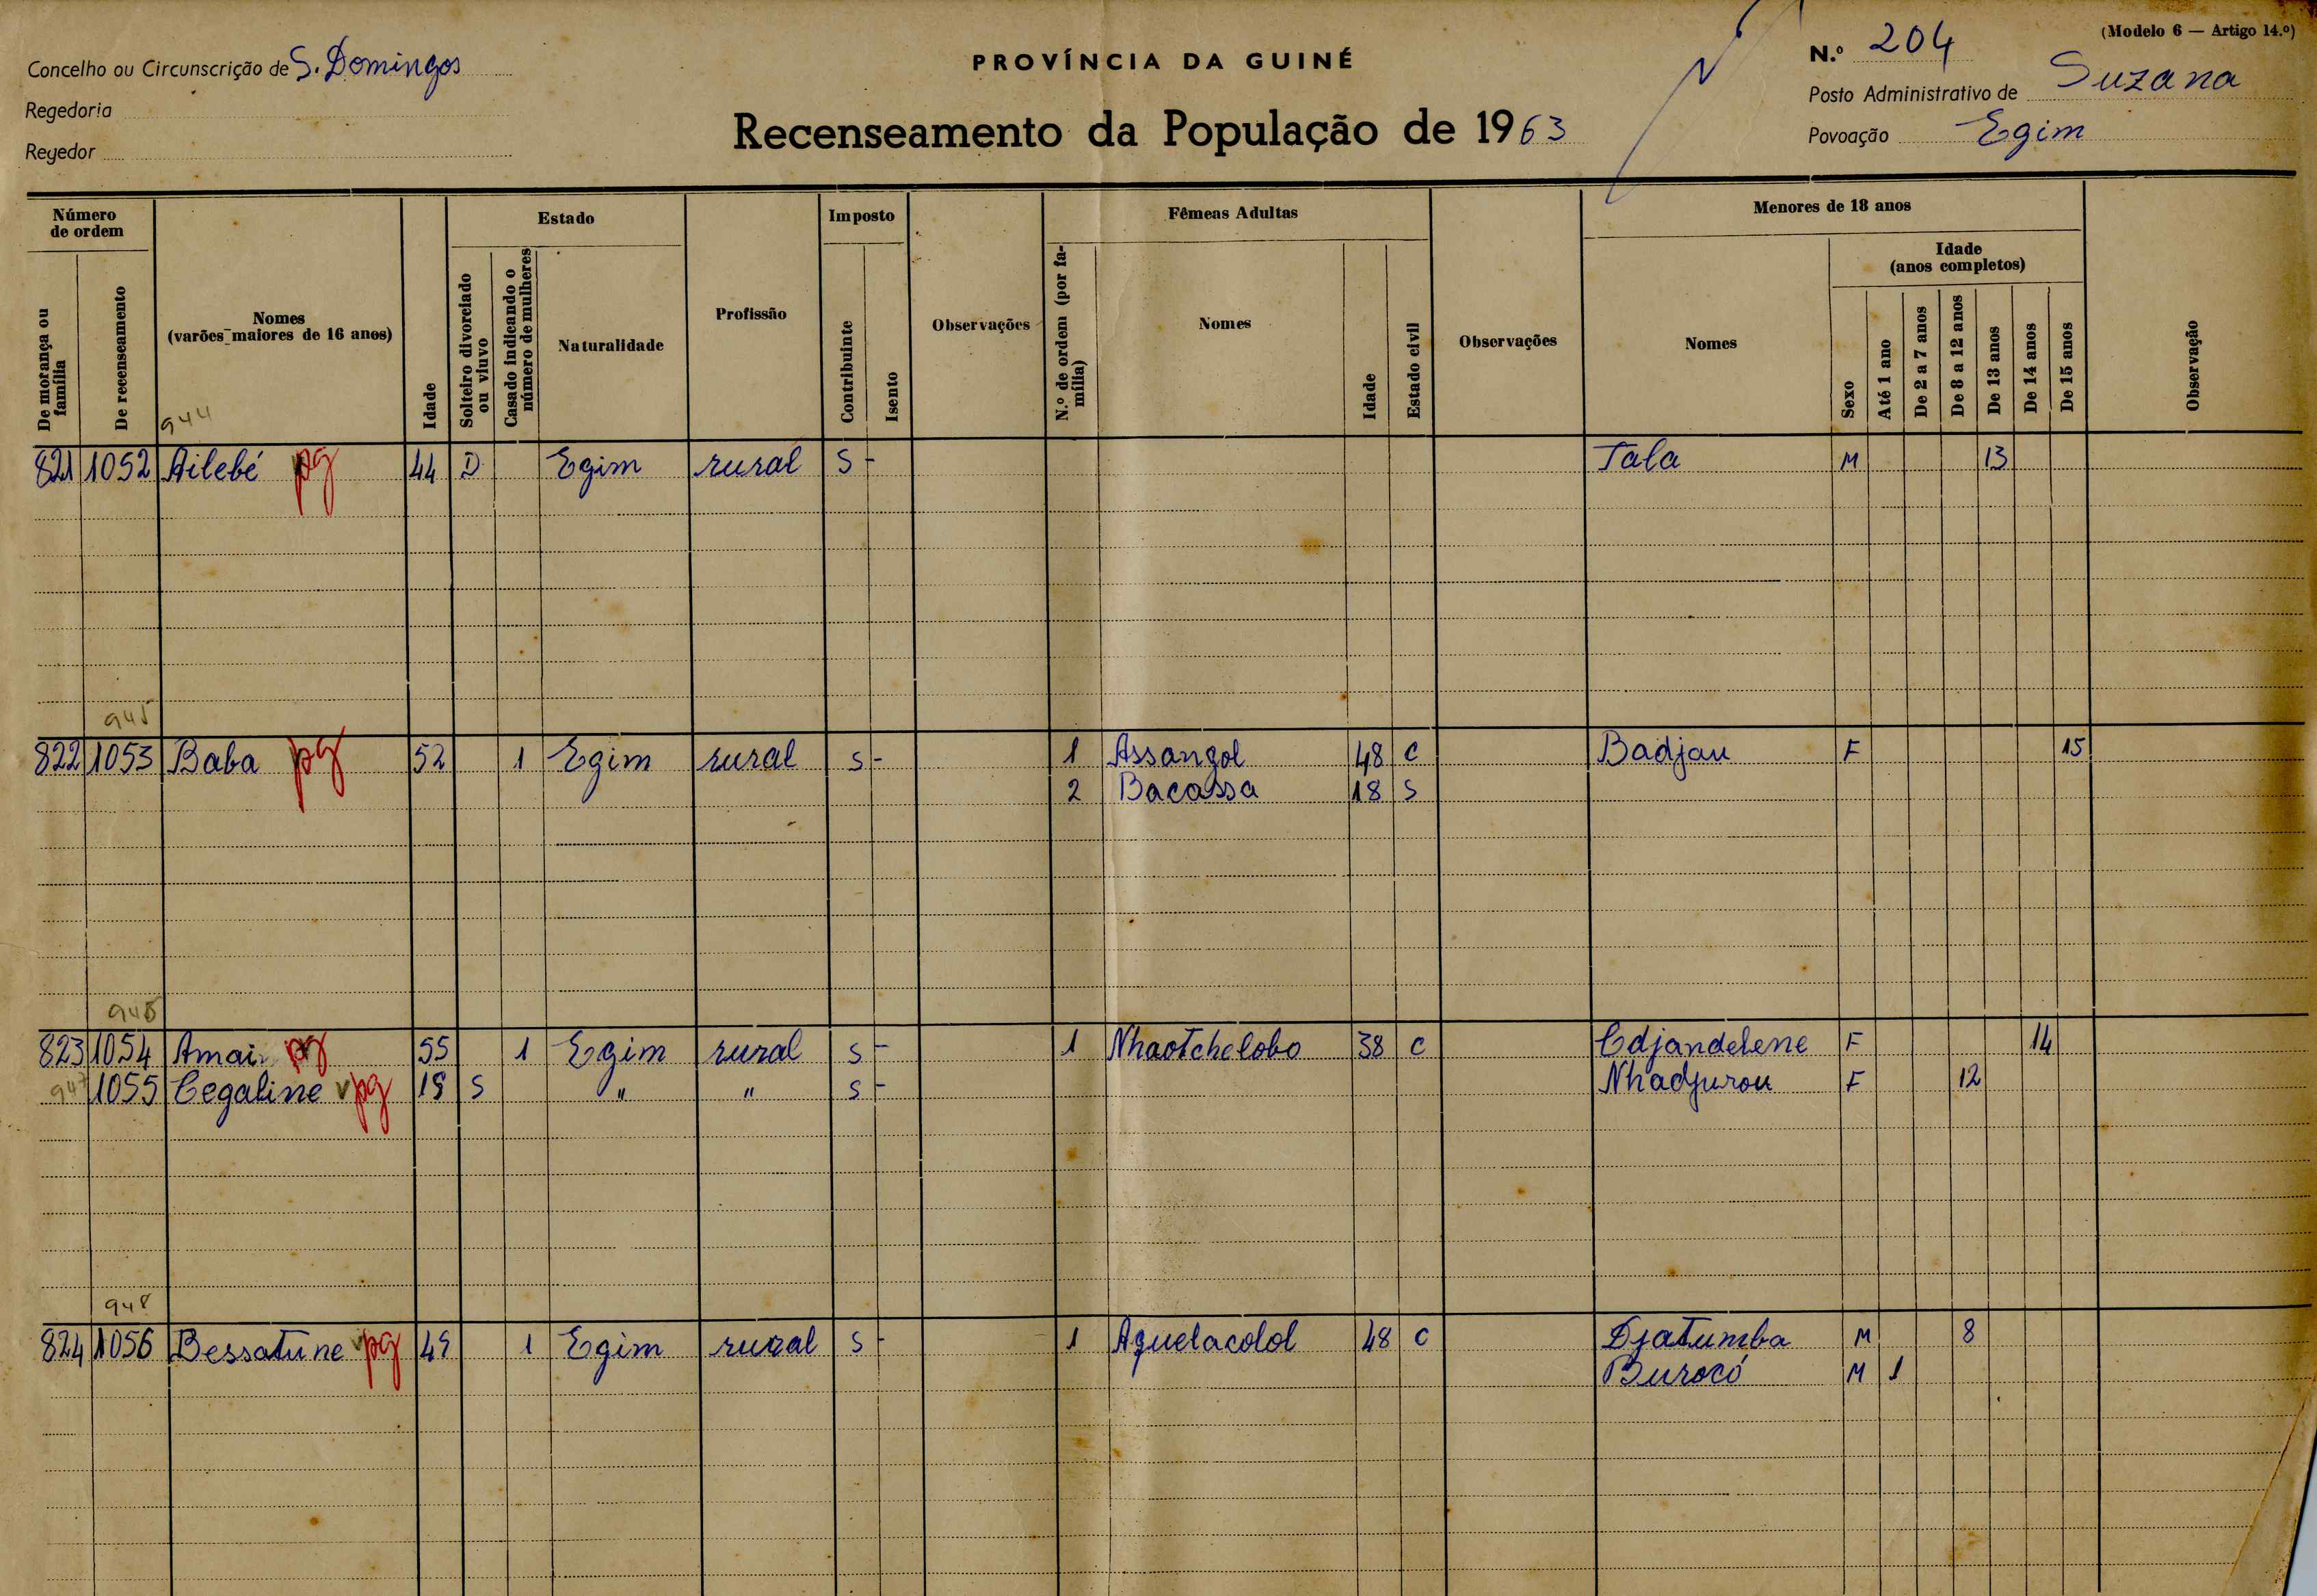 (Modelo 6 — Artigo 14.º)
Concelho ou Circunscrição de S. Domingos
PROVÍNCIA DA GUINÉ
N.º 204
Regedoria
Posto Administrativo de Suzana
Regedor
Recenseamento da População de 1963
Povoação Egim
Número de ordem
Estado
Imposto
Fêmeas Adultas
Menores de 18 anos
De morança ou família
De recenseamento
Nomes (varões maiores de 16 anos)
Idade
Solteiro divorciado ou viuvo
Casado indicando o número de mulheres
Naturalidade
Profissão
Contribuinte
Isento
Observações
N.º de ordem (por família)
Nomes
Idade
Estado civil
Observações
Nomes
Sexo
Idade (anos completos)
Até 1 ano
De 2 a 7 anos
De 8 a 12 anos
De 13 anos
De 14 anos
De 15 anos
Observação
944
821 1052 Ailebé pg 44 D Egim rural S - Tala M 13
945
822 1053 Baba pg 52 1 Egim rural S - 1 Assangol 48 C Badjau F 15
2 Bacassa 18 S
946
823 1054 Amai pg 55 1 Egim rural S - 1 Nhaotchelobo 38 C Edjandelene F 14
947 1055 Cegaline pg 19 S " " S - Nhadjurou F 12
948
824 1056 Bessatune pg 49 1 Egim rural S - 1 Aguelacolol 48 C Djatumba M 8
Burocó M 1